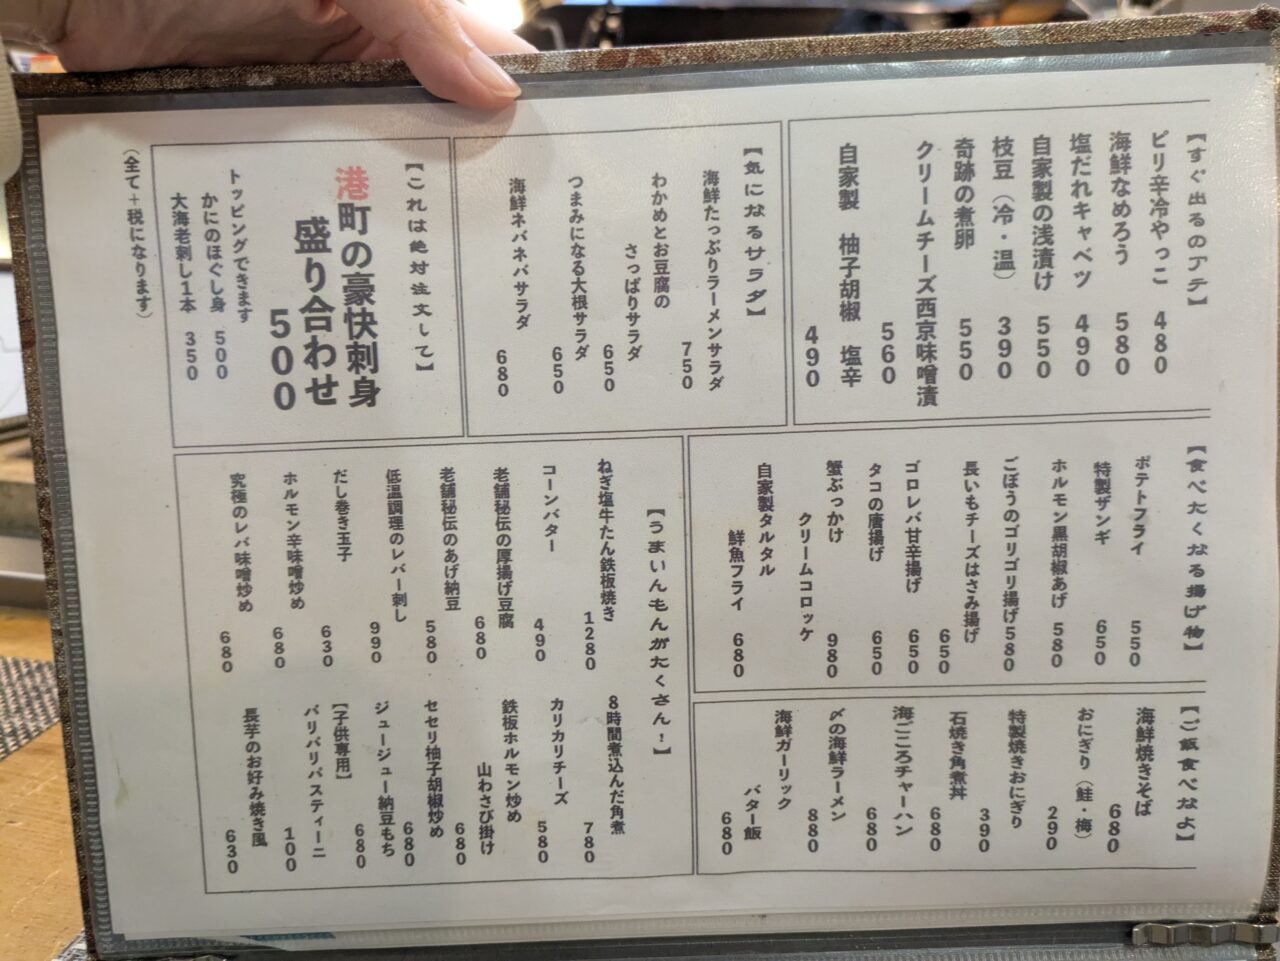 【すぐ出るのアテ】
ピリ辛冷やっこ 480
海鮮なめろう 580
塩だれキャベツ 490
自家製の浅漬け 550
枝豆（冷・温） 390
奇跡の煮卵 550
クリームチーズ西京味噌漬 560
自家製 柚子胡椒 塩辛 490
【気になるサラダ】
海鮮たっぷりラーメンサラダ 750
わかめとお豆腐の
さっぱりサラダ 650
つまみになる大根サラダ 650
海鮮ネバネバサラダ 680
【これは絶対注文して】
港町の豪快刺身
盛り合わせ
500
トッピングできます
かにのほぐし身 500
大海老刺し1本 350
（全て＋税になります）
【食べたくなる揚げ物】
ポテトフライ 550
特製ザンギ 650
ホルモン黒胡椒あげ 580
ごぼうのゴリゴリ揚げ 580
長いもチーズはさみ揚げ 650
ゴロレバ甘辛揚げ 650
タコの唐揚げ 650
蟹ぶっかけ
クリームコロッケ 980
自家製タルタル
鮮魚フライ 680
【ご飯食べなよ】
海鮮焼きそば 680
おにぎり（鮭・梅） 290
特製焼きおにぎり 390
石焼き角煮丼 680
海ごころチャーハン 680
〆の海鮮ラーメン 880
海鮮ガーリック
バター飯 680
【うまいんもんがたくさん！】
ねぎ塩牛たん鉄板焼き 1280
コーンバター 490
老舗秘伝の厚揚げ豆腐 680
老舗秘伝のあげ納豆 580
低温調理のレバー刺し 990
だし巻き玉子 630
ホルモン辛味噌炒め 680
究極のレバ味噌炒め 680
8時間煮込んだ角煮 780
カリカリチーズ 580
鉄板ホルモン炒め
山わさび掛け 680
セセリ柚子胡椒炒め 680
ジュージュー納豆もち 680
【子供専用】
パリパリパスティーニ 100
長芋のお好み焼き風 630